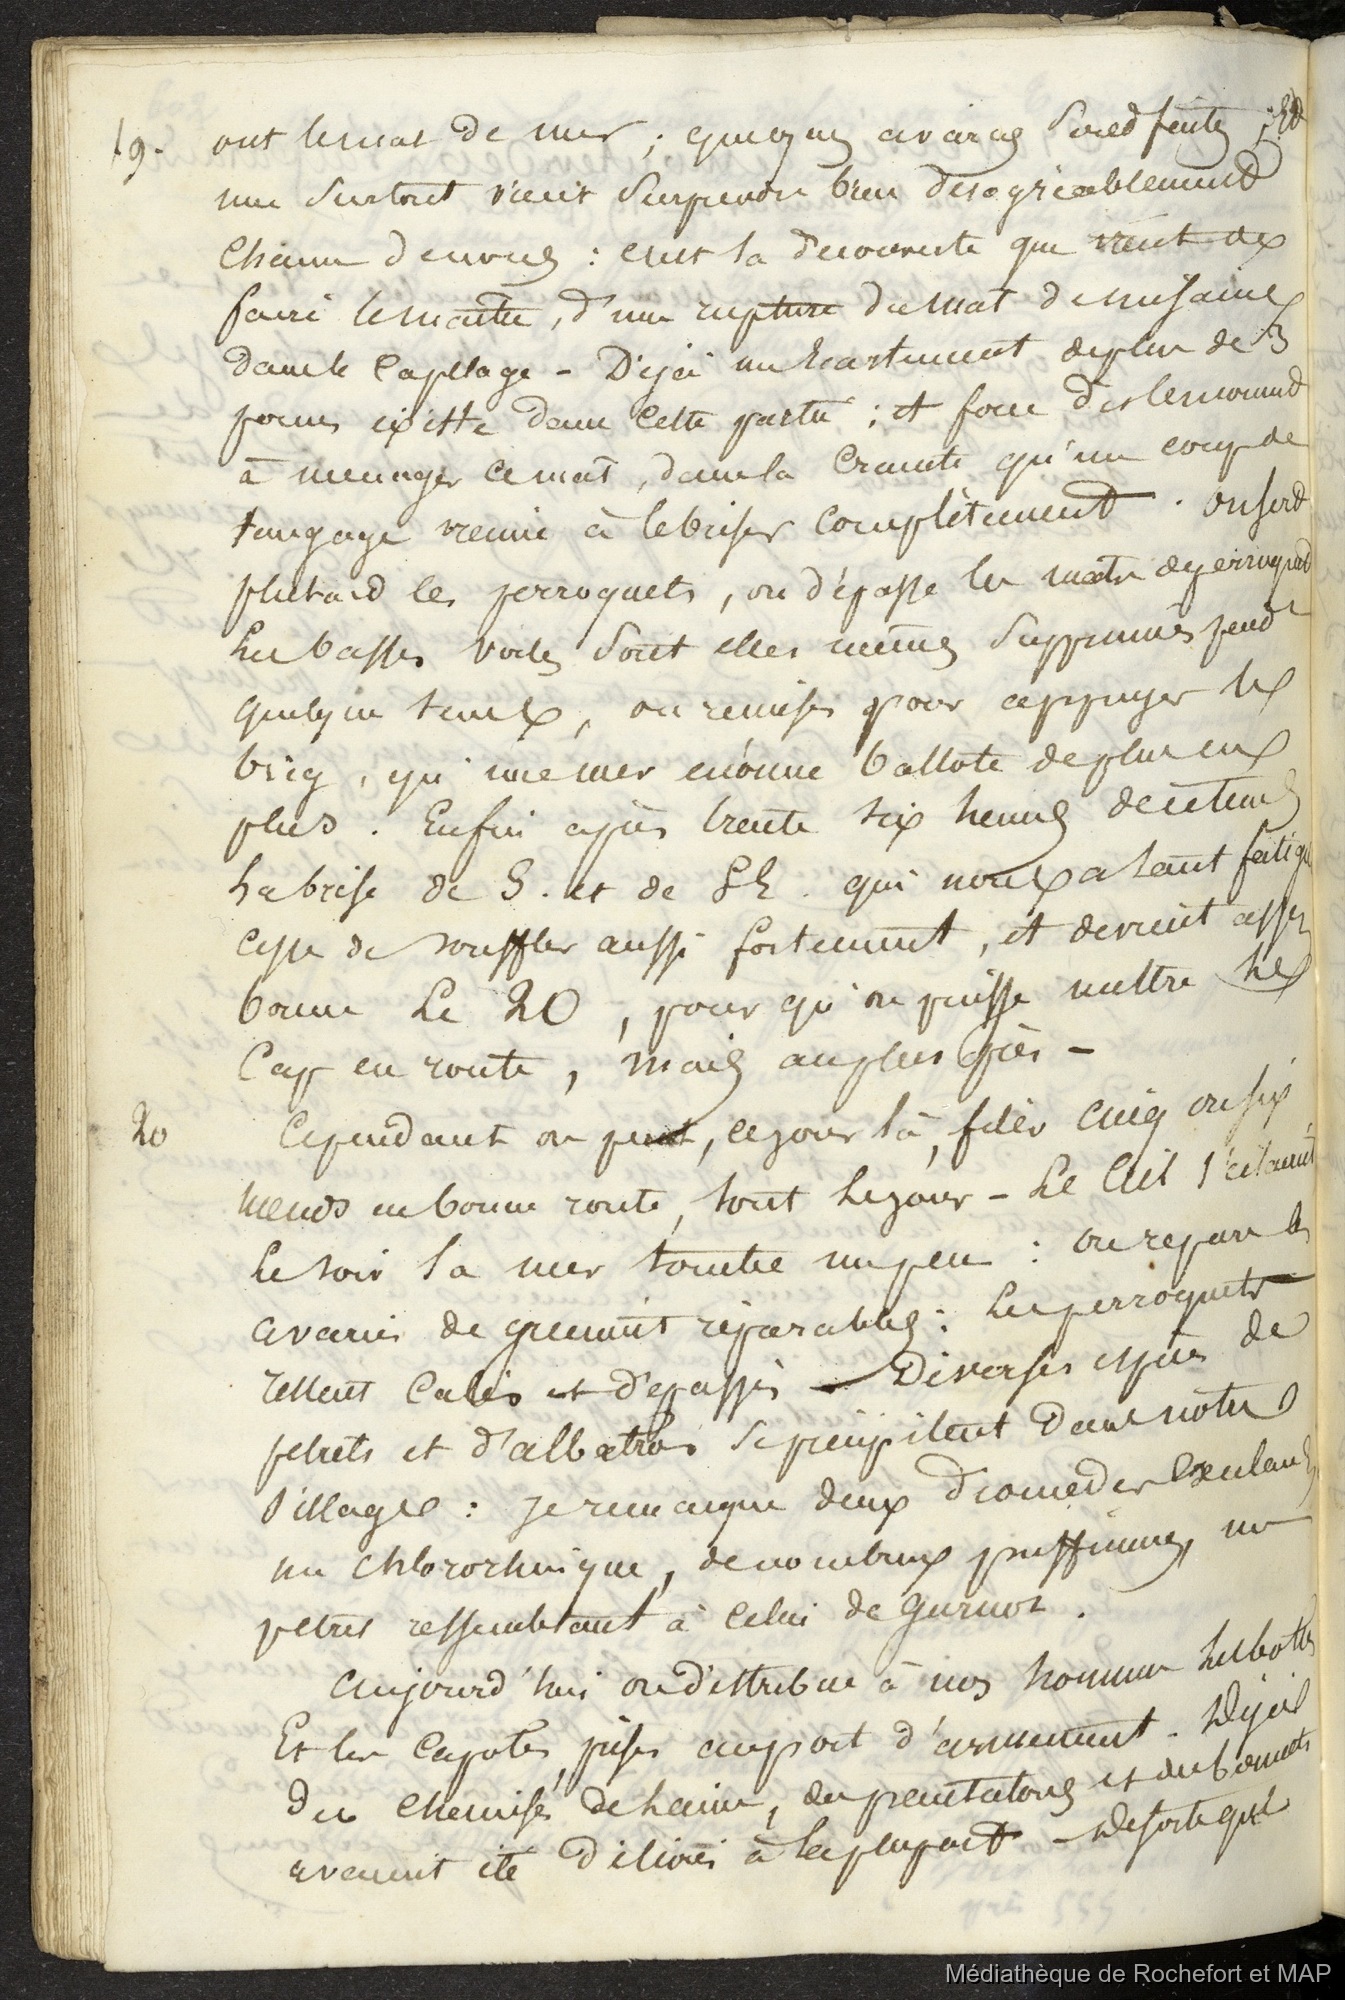 19. ont le mal de mer ; quelques avaries sont faites ; Et
une surtout vient surprendre bien desagréablement
Chacun de nous : c'est la decouverte que vient de
faire le maître, d'une rupture du mat de misaine
dans le Capelage - Déjà un Ecartement de plus de 3
pouces existe dans Cette partie ; et force dès le moment
à menager ce mât, dans la Crainte qu'un coup de
tangage vienne à le briser Complètement . On serd
plutard les perroquets, on dépasse les mats de perroquet
Les basses voiles sont elles mêmes supprimées pendt
quelque temps, ou remises pour appuyer le
brig, qu'une mer énorme ballote de plus en
plus . Enfin après trente six heures de ce temps
La brise de S. et de SE . qui nous a tant fatigué
cesse de souffler aussi fortement, et devient assez
bonne Le 20, pour qu'on puisse mettre le
Cap en route, mais au plus près -
20 Cependant on peut, ce jour là, filer Cinq ou six
nœuds en bonne route, tout le jour - Le Ciel s'éclaircit
Le soir la mer tombe un peu : On repare les
avaries de gréement réparables : Les perroquets
restent Calés et dépassés - Diverses espèces de
petrels et d'albatros se précipitent Dans notre
sillage : je remarque deux Diomedea Exulans,
un Chlororhinque, de nombreux puffinus, un
petrel ressemblant à Celui de Garnot .
Aujourd'hui on distribue à nos hommes les bottes
Et les Capotes, prises au port d'armement . Déjà
des Chemises de laine, des pantalons et des bonnets
avaient été délivrés à la plupart - De sorte que
Médiathèque de Rochefort et MAP